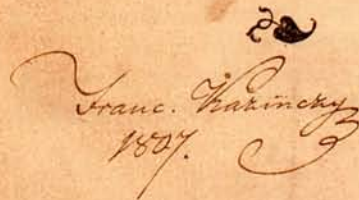 Franc. Kazinczy
1807.